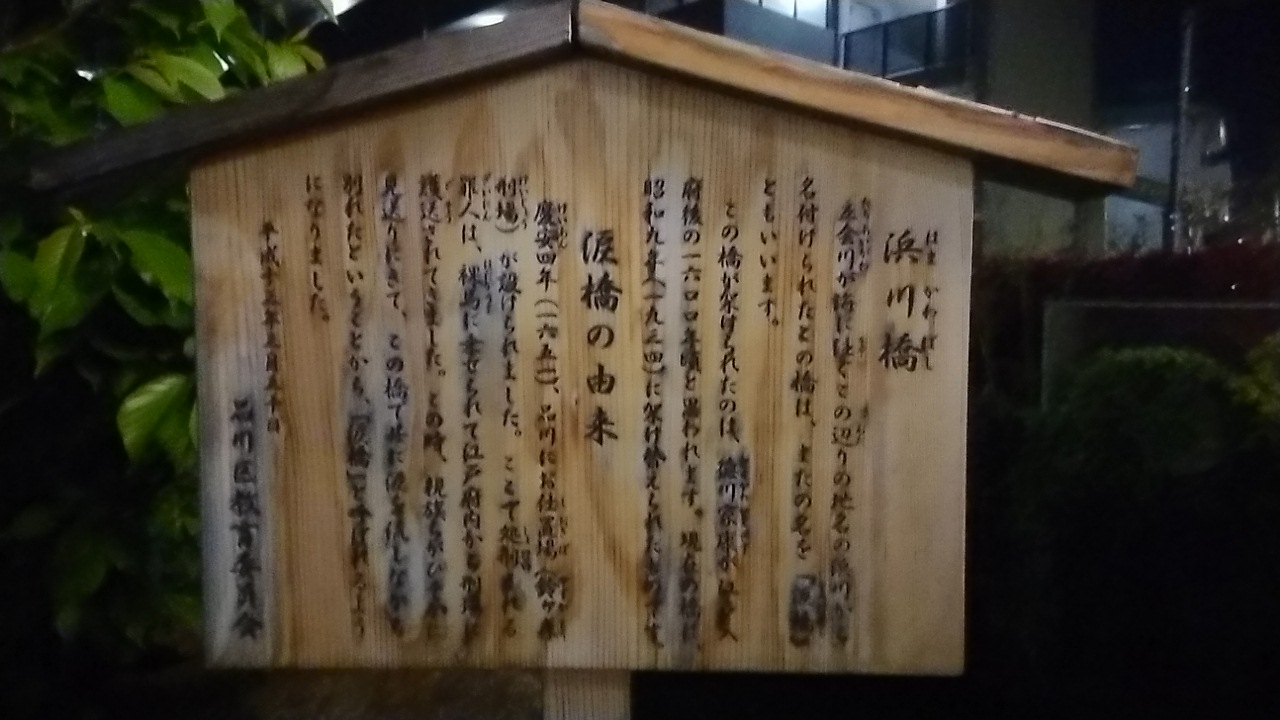 浜川橋
はま かわ ばし
立会川が海に注ぐこの辺りの地名の浜川から
名付けられたこの橋は、またの名を「涙橋」
ともいいます。
この橋が架けられたのは、徳川家康が江戸入
府後の一六〇〇年頃と思われます。現在の橋は、
昭和九年(一九三四)に架け替えられたものです。
涙橋の由来
慶安四年(一六五一)、品川にお仕置場(鈴ヶ森
刑場)が設けられました。ここで処刑される
罪人は、裸馬に乗せられて江戸府内から刑場に
護送されてきました。この時、親族らがひそかに
見送りにきて、この橋で共に涙を流しながら
別れたということから、「涙橋」と呼ばれるよう
になりました。
平成十五年三月三十日
品川区教育委員会